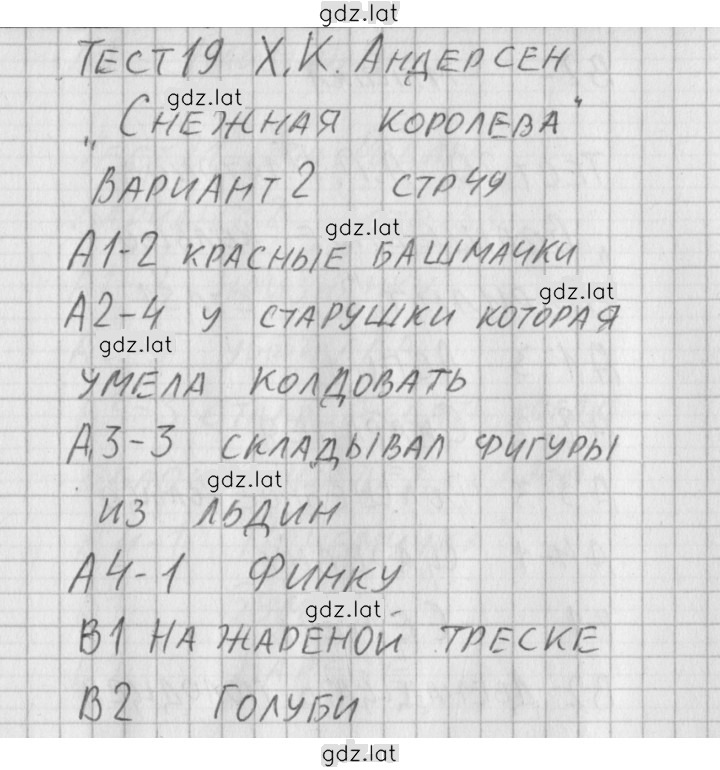 gdz.lat
ТЕСТ 19 Х.К. АНДЕРСЕН
gdz.lat
„СНЕЖНАЯ КОРОЛЕВА"
ВАРИАНТ 2 СТР 49
gdz.lat
А1-2 КРАСНЫЕ БАШМАЧКИ
gdz.lat
А2-4 У СТАРУШКИ КОТОРАЯ
gdz.lat
УМЕЛА КОЛДОВАТЬ
А3-3 СКЛАДЫВАЛ ФИГУРЫ
gdz.lat
ИЗ ЛЬДИН
А4-1 ФИНКУ
gdz.lat
В1 НА ЖАРЕНОЙ ТРЕСКЕ
В2 ГОЛУБИ
gdz.lat